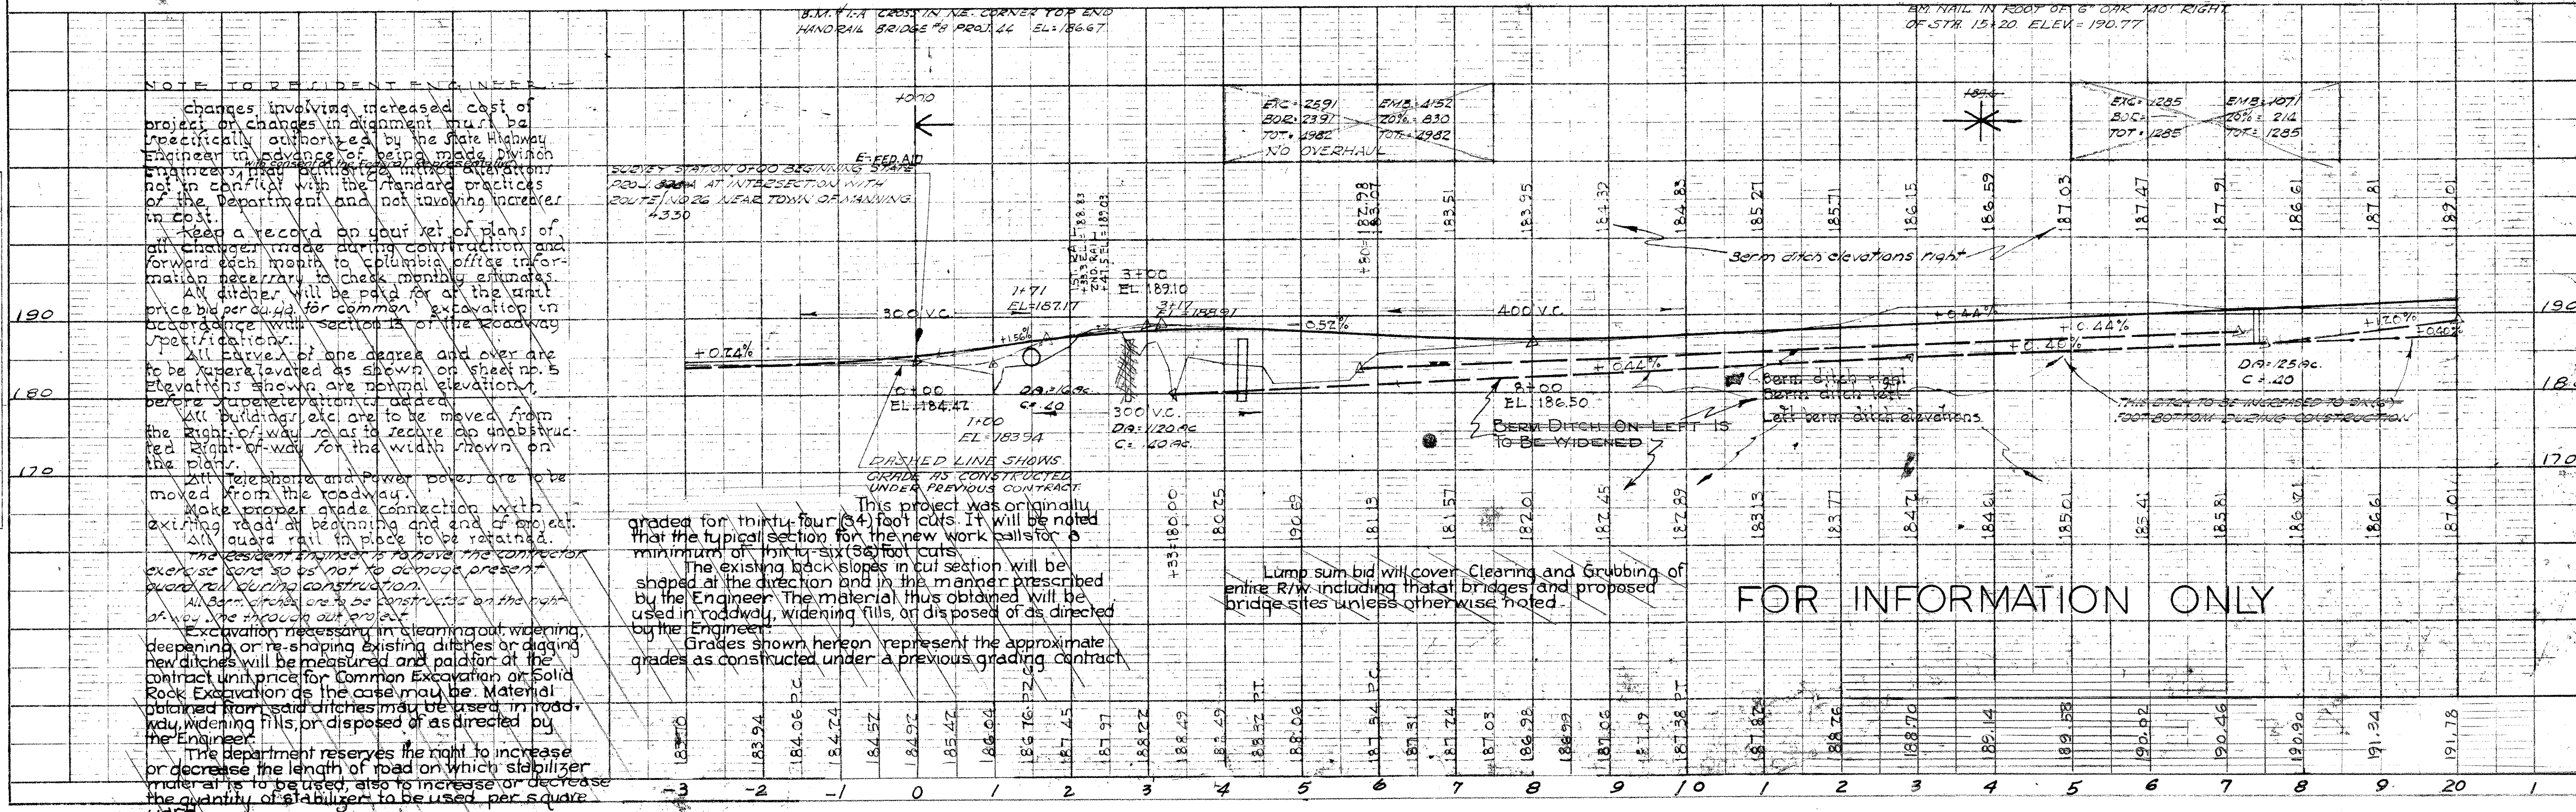 B.M. #1-A CROSS IN N.E. CORNER TOP END
HANDRAIL BRIDGE #8 PROJ. 44 EL=186.67
B.M. NAIL IN ROOT OF 6" OAK 140' RIGHT
OF STA. 15+20. ELEV = 190.77
NOTE TO RESIDENT ENGINEER:—
changes involving increased cost of
project or changes in alignment must be
specifically authorized by the State Highway
Engineer in advance of being made Division
with consent of the Federal Representative
Engineers may authorize minor alterations
not in conflict with the standard practices
of the Department and not involving increases
in cost.
Keep a record on your set of plans of
all changes made during construction and
forward each month to Columbia office infor-
mation necessary to check monthly estimates.
All ditches will be paid for at the unit
price bid per cu.yd. for common excavation in
accordance with section 15 of the Roadway
specifications.
All curves of one degree and over are
to be superelevated as shown on sheet no. 5
Elevations shown are normal elevations,
before superelevation is added.
All buildings, etc. are to be moved from
the Right-of-way so as to secure an unobstruc-
ted Right-of-way for the width shown on
the plans.
All Telephone and Power poles are to be
moved from the roadway.
Make proper grade connection with
existing road at beginning and end of project.
All guard rail in place to be retained.
The Resident Engineer is to have the contractor
exercise care so as not to damage present
guard rail during construction.
All Berm ditches are to be constructed on the right-
of-way line through out project
Excavation necessary in cleaning out, widening,
deepening or re-shaping existing ditches or digging
new ditches will be measured and paid for at the
contract unit price for Common Excavation or Solid
Rock Excavation as the case may be. Material
obtained from said ditches may be used in road-
way, widening fills, or disposed of as directed by
the Engineer.
The department reserves the right to increase
or decrease the length of road on which stabilizer
material is to be used, also to increase or decrease
the quantity of stabilizer to be used per square
+0+00
E-FED.AID
SURVEY STATION 0+00 BEGINNING STATE
PROJ. AT INTERSECTION WITH
ROUTE NO 26 NEAR TOWN OF MANNING
4330
EXC = 2591 EMB = 4152
BOR = 2391 20% = 830
TOT = 4982 TOT = 4982
NO OVERHAUL
EXC = 1285 EMB = 1071
BOR = 20% = 214
TOT = 1285 TOT = 1285
1ST. RAIL
+33.3 EL = 188.83
2ND. RAIL
+41.5 EL = 189.03
+80 = 182.98
183.07
183.51
183.95
184.39
184.83
185.27
185.71
186.15
186.59
187.03
187.47
187.91
186.61
187.81
189.01
Berm ditch elevations right
190
180
170
190
170
1+71
EL=187.17
3+00
EL 189.10
3+17
EL=188.91
300 V.C.
400 V.C.
+0.24%
+1.56%
-0.52%
+0.44%
+0.44%
+0.44%
+0.40%
+1.20%
+0.40%
0+00
EL.184.42
1+00
EL=183.94
DA=16Ac.
C=.40
300 V.C.
DA=1120 AC
C= .40 AC.
8+00
EL. 186.50
BERM DITCH ON LEFT IS
TO BE WIDENED
Berm ditch right
Berm ditch left
Left berm ditch elevations
DA=25 AC.
C = .20
THIS DITCH TO BE INCREASED TO SIX(6)
FOOT BOTTOM DURING CONSTRUCTION
DASHED LINE SHOWS
GRADE AS CONSTRUCTED
UNDER PREVIOUS CONTRACT.
This project was originally
graded for thirty-four (34) foot cuts. It will be noted
that the typical section for the new work calls for a
minimum of thirty-six (36) foot cuts
The existing back slopes in cut section will be
shaped at the direction and in the manner prescribed
by the Engineer. The material thus obtained will be
used in roadway, widening fills, or disposed of as directed
by the Engineer.
Grades shown hereon represent the approximate
grades as constructed under a previous grading contract
+33=180.00
180.25
190.69
181.13
181.57
182.01
182.45
182.89
183.13
183.77
184.21
184.61
185.01
185.41
185.81
186.21
186.61
187.01
Lump sum bid will cover Clearing and Grubbing of
entire R/W including that at bridges and proposed
bridge sites unless otherwise noted.
FOR INFORMATION ONLY
183.70
183.94
184.06 P.C.
184.24
184.57
184.92
185.42
186.04
186.76 P.R.C.
187.45
187.97
188.22
188.49
188.49
188.32 P.T.
188.06
187.54 P.C.
187.31
187.24
187.03
186.98
186.99
187.06
187.19
187.38 P.T.
187.82
188.26
188.70
189.14
189.58
190.02
190.46
190.90
191.34
191.78
-3 -2 -1 0 1 2 3 4 5 6 7 8 9 10 1 2 3 4 5 6 7 8 9 20 1